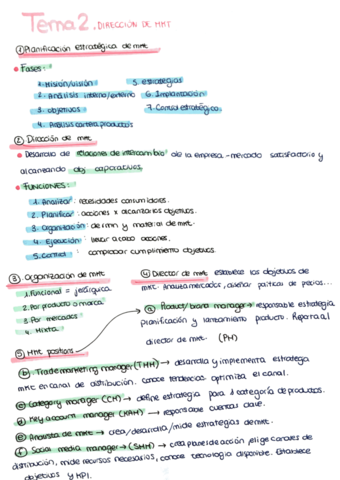 Tema 2. DIRECCIÓN DE MKT
① Planificación estratégica de mkt
• Fases:
1. Misión/visión
5. estrategias
2. Análisis interno/externo
6. Implantación
3. objetivos
7. Control estratégico
4. Análisis cartera productos
② Dirección de mkt
• Desarrollo de relaciones de intercambio de la empresa-mercado satisfactorio y
alcanzando obj corporativos
• FUNCIONES:
1. Analizar: necesidades consumidores.
2. Planificar: acciones x alcanzarlos objetivos.
3. Organización: de rrhh y material de mkt.
4. Ejecución: llevar a cabo acciones.
5. Control: comprobar cumplimiento objetivos.
③ Organización de mkt
1. Funcional = jerárquica
2. Por producto o marca
3. Por mercados
4. Mixta.
④ Director de mkt establece los objetivos de
mkt. Analiza mercados, diseñar políticas de precios...
ⓐ Product/brand manager → responsable estrategia
planificación y lanzamiento producto. Repara al
director de mkt. (PM)
⑤ Mkt positions
ⓑ Trade marketing manager (TMM) → desarrolla y implementa estrategia
mkt en canal de distribución. conoce tendencias. optimiza el canal.
ⓒ Category manager (CM) → define estrategia para 1 categoría de productos.
ⓓ Key account manager (KAM) → responsable cuentas clave.
ⓔ Analista de mkt → crea/desarrolla/mide estrategias de mkt.
ⓕ Social media manager → (SMM) → crea planes de acción, elige canales de
distribución, mide recursos necesarios, conoce tecnología disponible. Establece
objetivos y KPI.